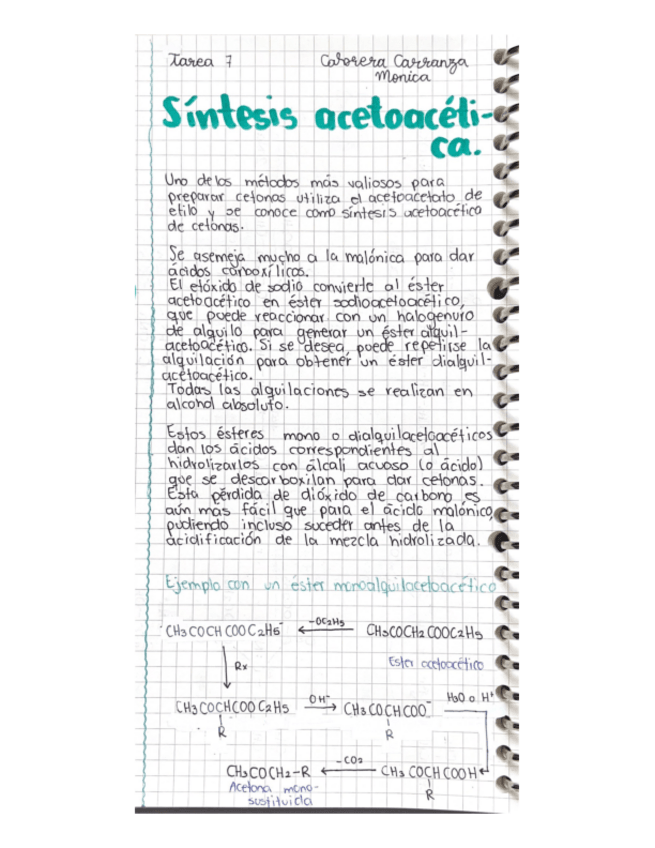 Tarea 7
Cabrera Carranza
Monica
Síntesis acetoacéti-
ca.
Uno de los métodos más valiosos para
preparar cetonas utiliza el acetoacetato de
etilo y se conoce como síntesis acetoacético
de cetonas.
Se asemeja mucho a la malónica para dar
ácidos carboxílicos.
El etóxido de sodio convierte al éster
acetoacético en éster sodioacetoacético,
que puede reaccionar con un halogenuro
de alquilo para generar un éster alquil-
acetoacético. Si se desea puede repetirse la
alquilación para obtener un éster dialquil-
acetoacético.
Todas las alquilaciones se realizan en
alcohol absoluto.
Estos ésteres mono o dialquilacetoacéticos
dan los ácidos correspondientes al
hidrolizarlos con álcali acuoso (o ácido)
que se descarboxilan para dar cetonas.
Esta pérdida de dióxido de carbono es
aún más fácil que para el ácido malónico,
pudiendo incluso suceder antes de la
acidificación de la mezcla hidrolizada.
Ejemplo con un éster monoalquilacetoacético
CH3COCHCOOC2H5⁻ ← -OC2H5 CH3COCH2COOC2H5
Ester acetoacético
Rx
CH3COCHCOOC2H5 OH⁻ → CH3COCHCOO⁻ H2O o H⁺
R R
CH3COCH2-R ← -CO2 CH3COCHCOOH
R
Acetona mono-
sustituida